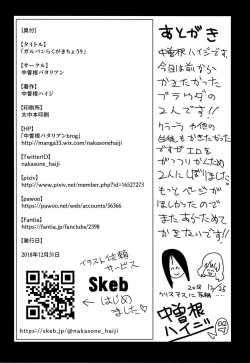 【奥付】
【タイトル】
「ガルパンらくがきちょう9」
【サークル】
中曽根バタリアン
【著作】
中曽根ハイジ
【印刷所】
太中本印刷
【HP】
「中曽根バタリアンbrog」
http://manga33.wix.com/nakasonehaiji
【TwitterID】
nakasone_haiji
【pixiv】
http://www.pixiv.net/member.php?id=16527273
【pawoo】
https://pawoo.net/web/accounts/56366
【Fantia】
https://fantia.jp/fanclubs/2398
【発行日】
2018年12月31日
イラスト依頼
サービス
Skeb
はじめ
ました
https://skeb.jp/@nakasone_haiji
あとがき
中曽根ハイジです。
今日は前から
かきたかった
プラウダの
2人です!!
クラーラや他の
も かきたかった
ですが エロを
がっつりかくため
2人にしぼりました
もっとページが
ほしかったので
またあらためて
かきたいです!!
2018 12/25
クリスマスに
中曽根
ハイジ